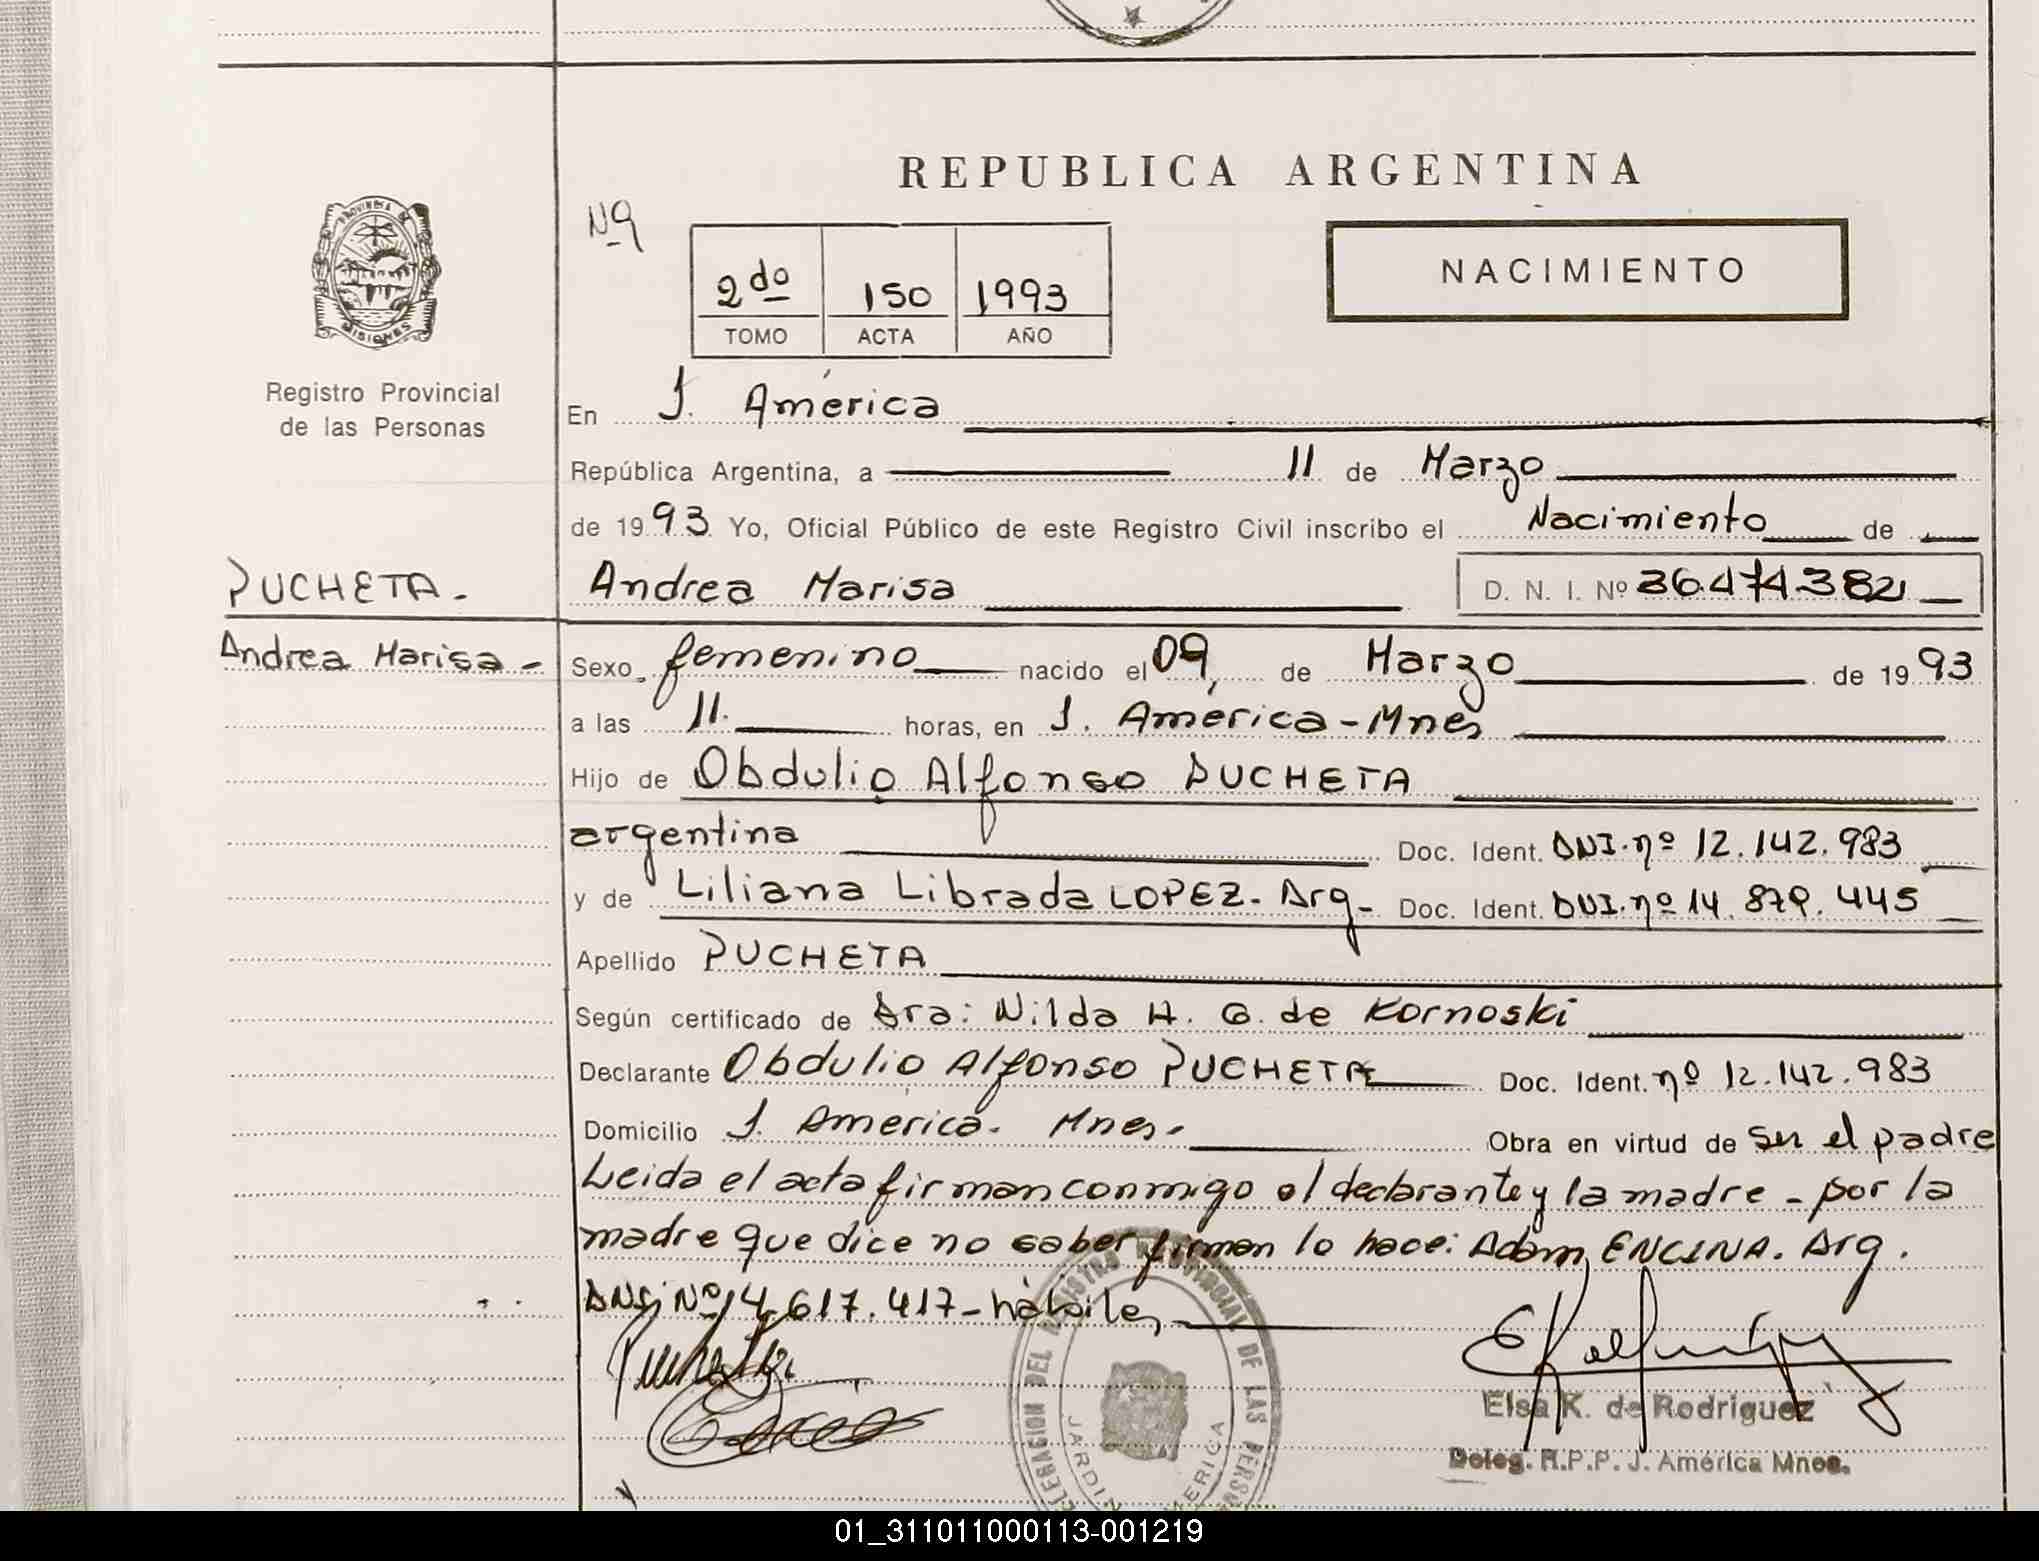 REPUBLICA ARGENTINA
PROVINCIA DE MISIONES
Registro Provincial
de las Personas
Nº
2do 150 1993
TOMO ACTA AÑO
NACIMIENTO
En J. América
República Argentina, a 11 de Marzo
de 1993 Yo, Oficial Público de este Registro Civil inscribo el Nacimiento de
PUCHETA.
Andrea Marisa -
Andrea Marisa D. N. I. Nº 36.474.382
Sexo femenino nacido el 09, de Marzo de 1993
a las 11. horas, en J. América - Mnes
Hijo de Obdulio Alfonso PUCHETA
argentina Doc. Ident. DNI. nº 12.142.983
y de Liliana Librada LOPEZ. Arg- Doc. Ident. DNI. nº 14.879.445
Apellido PUCHETA
Según certificado de Dra: Nilda H. G. de Kornoski
Declarante Obdulio Alfonso PUCHETA Doc. Ident. nº 12.142.983
Domicilio J. América. Mnes. Obra en virtud de ser el padre
Leida el acta firman conmigo el declarante y la madre - por la
madre que dice no saber firmar lo hace: Adam ENCINA. Arg.
DNI Nº 14.617.417 - hábiles
Pucheta
DELEGACION DEL REGISTRO PROVINCIAL DE LAS PERSONAS
JARDIN AMERICA
Elsa K. de Rodriguez
Deleg. R.P.P. J. América Mnes.
01_311011000113-001219